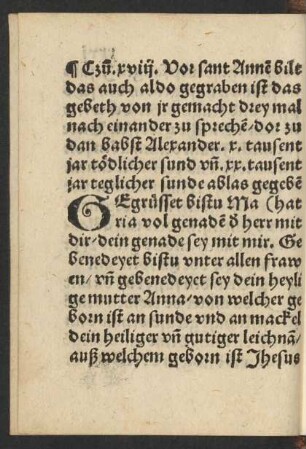 ¶ Czũ. xviij. Vor sant Annẽ bilt
das auch aldo gegraben ist das
gebeth von jr gemacht drey mal
nach einander zu sprechẽ / dor zu
dan babst Alexander. x. tausent
jar tödlicher sund vñ. xx. tausent
jar teglicher sunde ablas gegebẽ
GEgrüsset bistu Ma (hat
ria vol genadẽ ð herr mit
dir / dein genade sey mit mir. Ge
benedeyet bistu vnter allen fraw
en / vñ gebenedeyet sey dein heyli
ge mutter Anna / von welcher ge
born ist an sunde vnd an mackel
dein heiliger vñ gutiger leichnã /
auß welchem geborn ist Jhesus